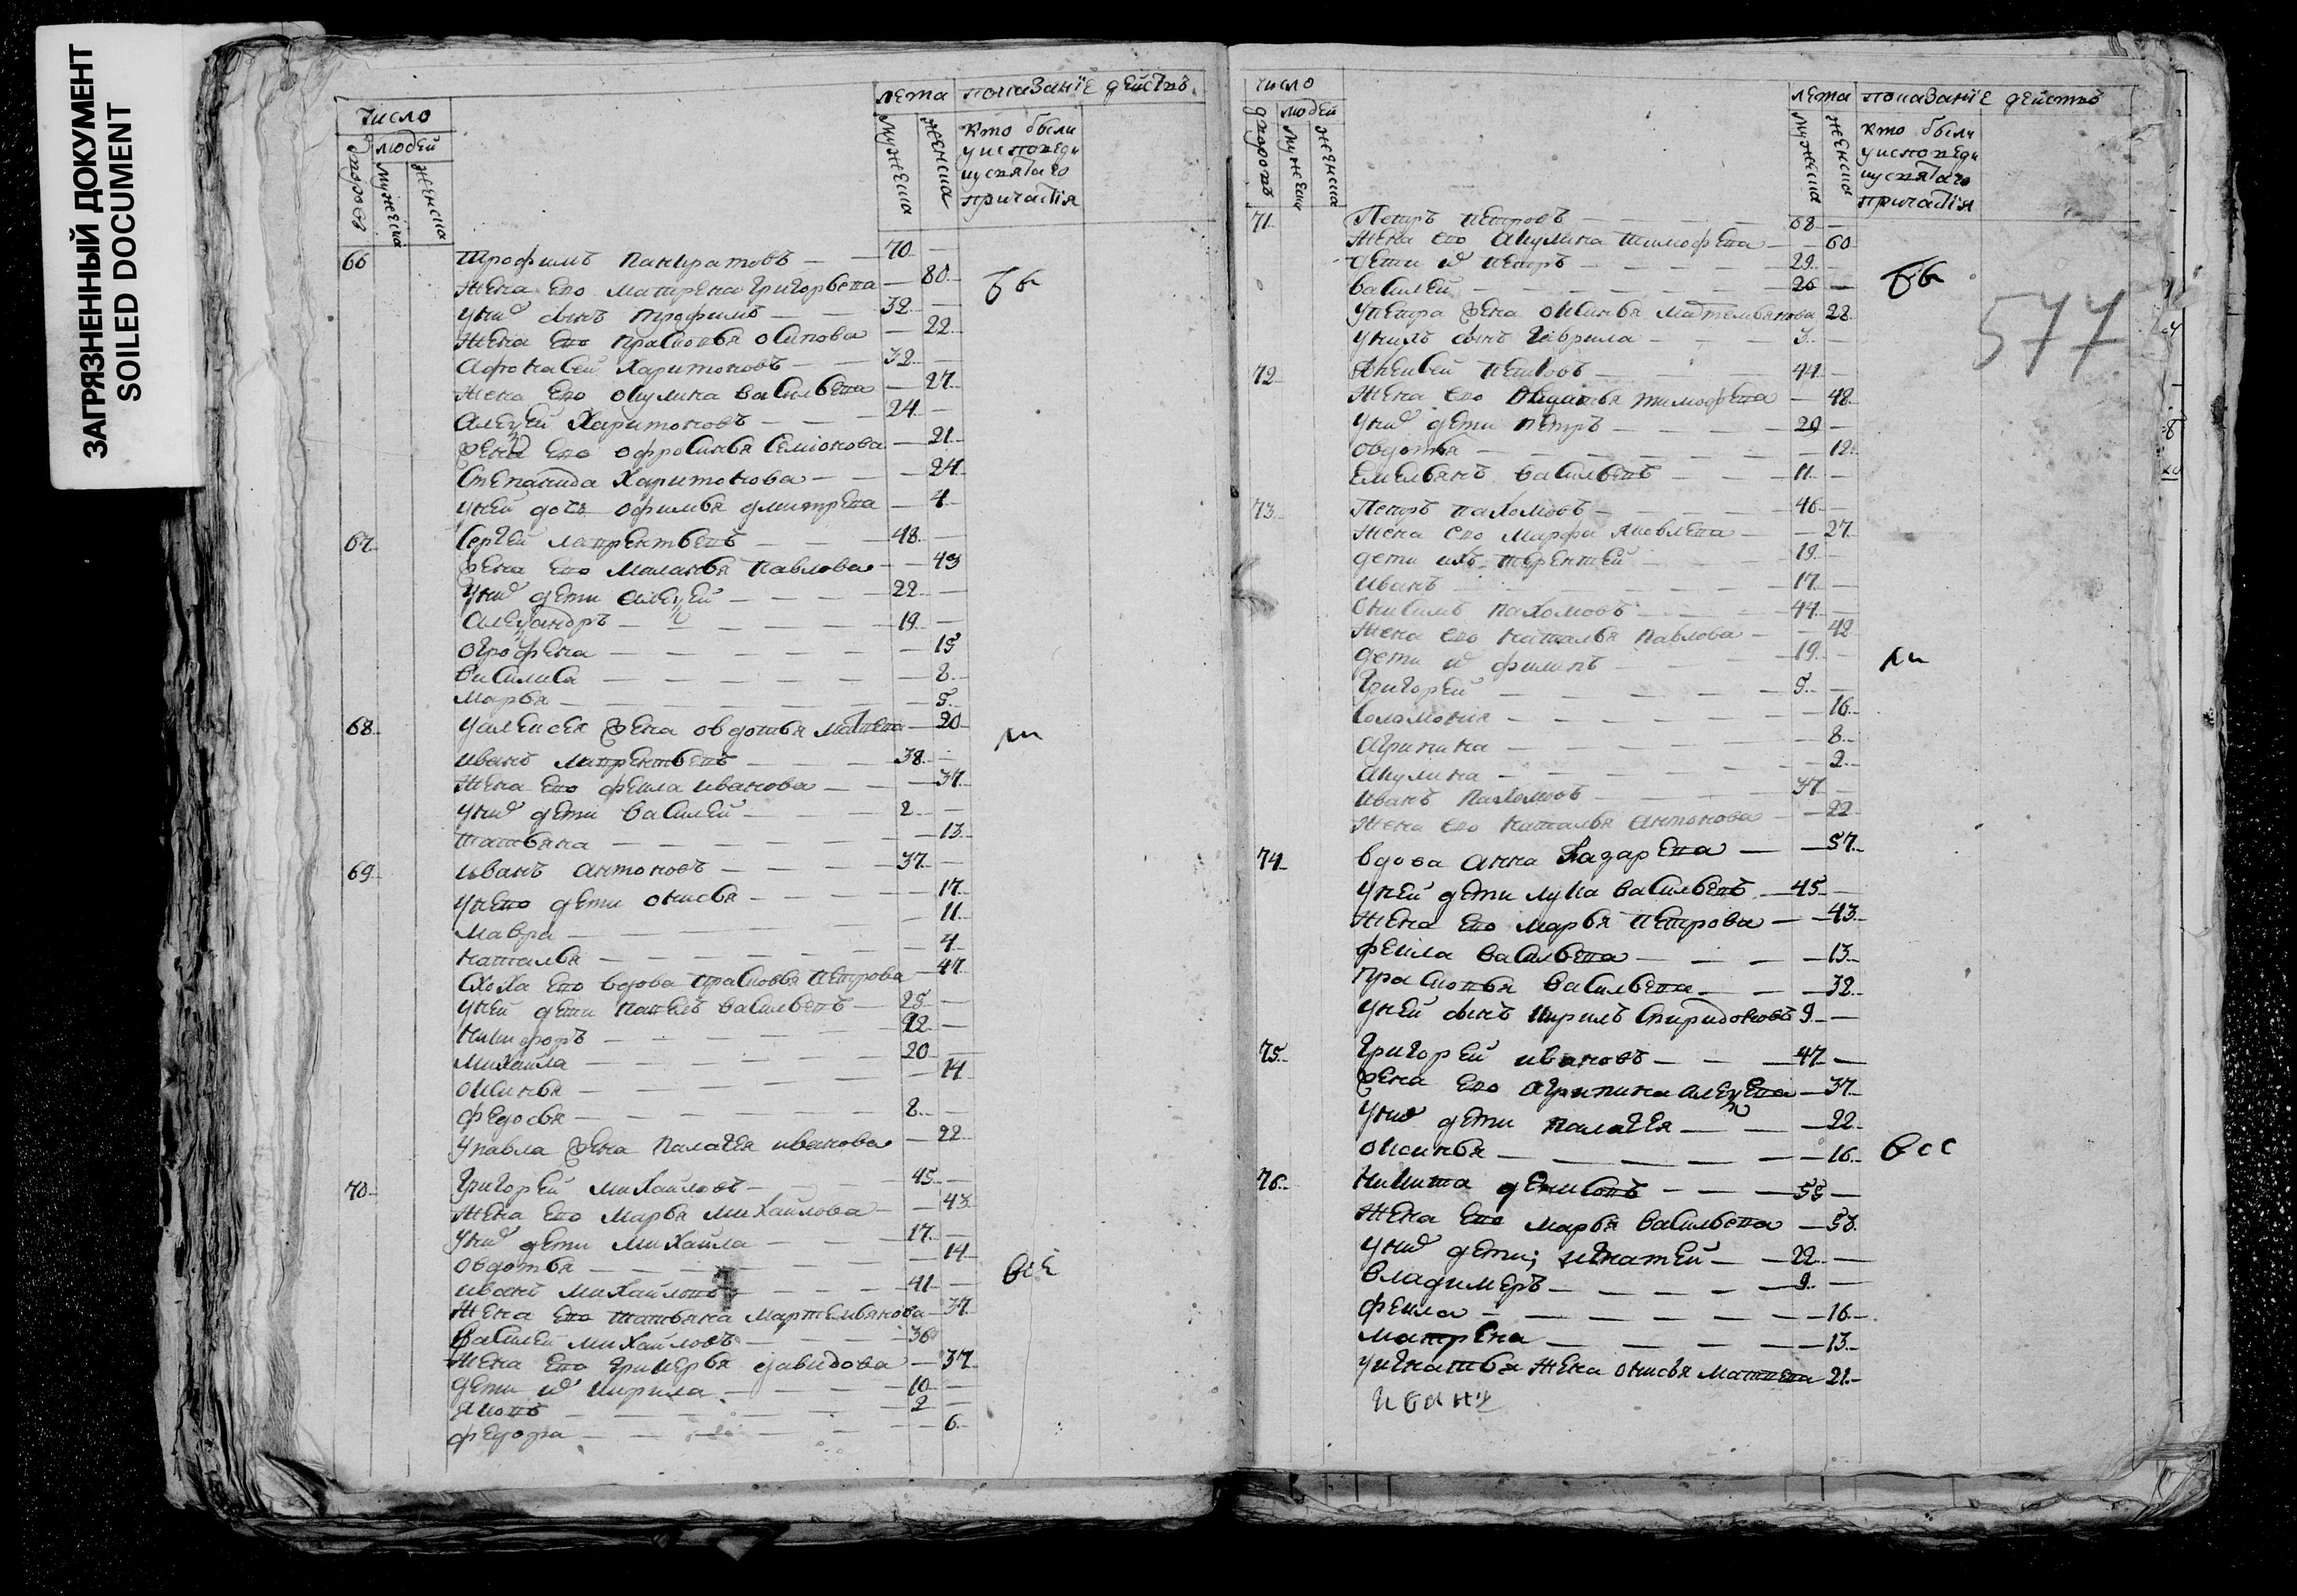 ЗАГРЯЗНЕННЫЙ ДОКУМЕНТ
SOILED DOCUMENT
число
лета показанїе действъ
дворовъ
людей
мужеска
женска
мужеска
женска
кто были
у исповеди
и у святаго
причастїя
66 трофимъ панкратовъ — 70
жена ево матрена григорьева — 80
у них сынъ трофимъ — 32
жена ево прасковья осипова — 22
афонасей харитоновъ — 32
жена ево окулина васильева — 27
алеѯей харитоновъ — 24
жена ево офросинья семїонова — 21
степанида харитонова — 24
у ней дочь офимья дмитрева — 4
67 сергей лаврентьевъ — 48
жена ево маланья павлова — 43
у них дети алеѯей — 22
алеѯандръ — 19
огрофена — 15
василиса — 8
марья — 5
68 у алексея жена овдотья матвева — 20
иванъ лаврентьевъ — 38
жена ево фекла иванова — 37
у них дети василей — 2
татьяна — 13
69 иванъ антоновъ — 37
у нево дети онисья — 17
мавра — 11
наталья — 4
сноха ево вдова прасковья петрова — 47
у ней дети павелъ васильевъ — 25
никифоръ — 22
михайла — 20
оксинья — 14
федосья — 8
у павла жена палагея иванова — 22
70 григорей михайловъ — 45
жена ево марья михайлова — 43
у них дети михайла — 17
овдотья — 14
иванъ михайловъ — 41
жена ево татьяна мартемьянова — 37
василей михайловъ — 36
жена ево гликерья давидова — 37
дети их кирила — 10
яковъ — 2
федора — 6
число
лета показанїе действъ
дворовъ
людей
мужеска
женска
мужеска
женска
кто были
у исповеди
и у святаго
причастїя
577
71 петръ петровъ — 68
жена ево акулина тимофева — 60
дети их петръ — 29
василей — 26
у петра жена оксинья мартемьянова 28
у нихъ сынъ гаврила — 3
72 петровъ — 44
жена ево тимофева — 48
у них дети петръ — 20
овдотья — 12
емельянъ васильевъ — 11
73 петръ пахомовъ — 46
жена ево марфа яковлева — 27
дети ихъ терентей — 19
иванъ — 17
онисимъ пахомовъ — 44
жена ево наталья павлова — 42
дети их филипъ — 19
григорей — 5
соломония — 16
агрипина — 8
акулина — 2
иванъ пахомовъ — 37
жена ево наталья антонова — 22
74 вдова анна лазарева — 57
у ней дети лука васильевъ — 45
жена ево марья петрова — 43
фекла васильева — 13
прасковья васильева — 32
у ней сынъ кирилъ спиридоновъ 9
75 григорей ивановъ — 47
жена ево агрипина алеѯева — 37
у них дети палагея — 22
оксинья — 16
76 никита денисовъ — 55
жена ево марья васильева — 53
у них дети; игнатей — 22
владимеръ — 9
фекла — 16
матрена — 13
у игнатья жена онисья матвева 21